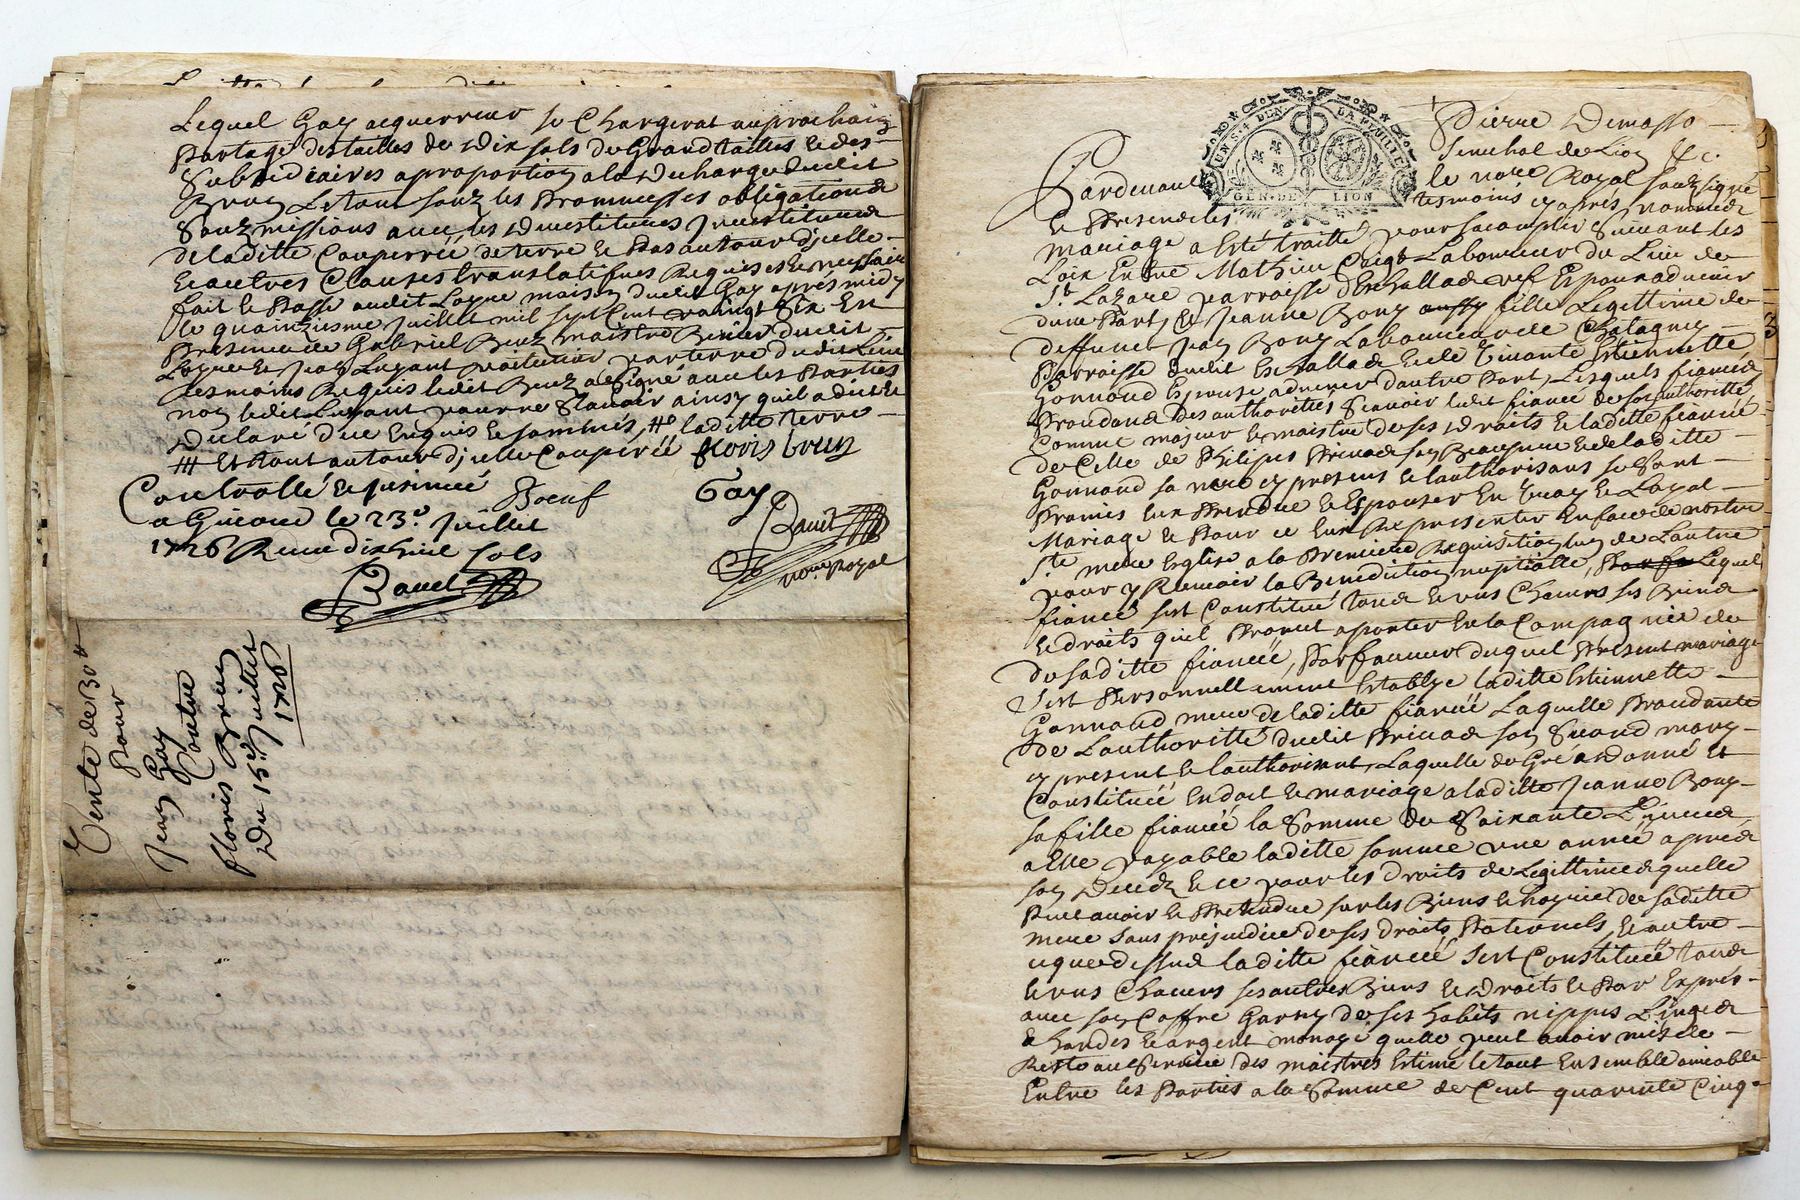 Lequel Gay acquerreur se Chargerat au prochain
Partage des tailles de Dix sols de Grand tailles & des
Subsidiaires a proportion a la decharge dudit
Brun Le tout souz les Promesses obligations
Souzmissions avec les devestitures Jnvestitures
de laditte Couperrée de terre & Pas autour d'jcelle
& autres Clauses translatifves Requises & necessaires
fait & Passé audit Loyre maison dudit Gay aprés midy
le quainziesme Juillet mil sept Cent vaingt Six En
Presence de Gabriel maistre dudit
Loyre & Jean Luyant voiturier par terre dudit Lieu
tesmoins Requis ledit a Signé avec les Parties
non ledit Luyant pour ne Scavoir ainsy qu'il a dit &
Declaré düe enquis & sommés, # laditte terre
# Et tout autour d'jcelle Couperée floris brun
Controllé & jnsinué Boeuf Gay
a le 23e. Juillet
1726 Receu dix huit sols
Ravet
Ravet
nore. Royal
Vente de 30 #
Pour
Jean Gay
Contre
floris Brun
Du 15e. Juillet
1726
UN S. 4 DEN. LA FEUILLE
GEN. DE LION
Pierre Demasso
Senechal de Lion &c.
Pardevant le nore Royal souzsigné
& Presens les tesmoins cy aprés nommés
mariage a esté traitté pour s'acomplir Suivant les
Loix Entre Mathieu Laboureur du Lieu de
St. Lazare parroisse d'Es Espoux advenir
d'une Part, & Jeanne Bony fille Legittime de
deffunct Jean Bony Laboureur de
Parroisse dudit & de vivante Estiennette
Gonnand Espouse advenir d'autre Part, Lesquels fiancés
Procedans des authorités Scavoir ledit fiancé de son authorité
Comme majeur & maistre de ses Droits & laditte fiancée
de Celle de Philipes son Beaupere & de laditte
Gonnand sa mere cy presens & l'authorisans se sont
Promis Eux Prendre & Espouser En vray & Loyal
Mariage & Pour ce Eux Representer En face de nostre
Ste. mere Eglise a la Premiere Requisition l'un de L'autre
pour y Recevoir la Benediction nuptialle, Lequel
fiancé s'est Constitué tous & uns Chacuns ses Biens
& droits qu'il Promet aporter En la Compagnie de
de saditte fiancée, Par faveur duquel Present mariage
s'est Personnellement Establye laditte Estiennette
Gonnand mere de laditte fiancée Laquelle Procedante
de L'authorité dudit son Second mary
cy present & l'authorisant, Laquelle de Gré a Donné &
Constitué En dot & mariage a laditte Jeanne Bony
sa fille fiancée la Somme de Soixante Livres
a Elle payable laditte somme une année aprés
son Deceds & ce pour les droits de Legittime qu'elle
Peut avoir & Pretendre sur les Biens & hoyrie de saditte
mere sans prejudice de ses droits Paternels, & outre
ce que dessus laditte fiancée s'est Constituée tous
& uns Chacuns ses autres Biens & Droits & Par Exprés
avec son Coffre Garny de ses habits nippes Linges
& hardes & argent monoyé qu'elle peut avoir mis de
Reste au Service des maistres Estimé le tout Ensemble amiablet
Entre les Parties a la Somme de Cent quarente Cinq